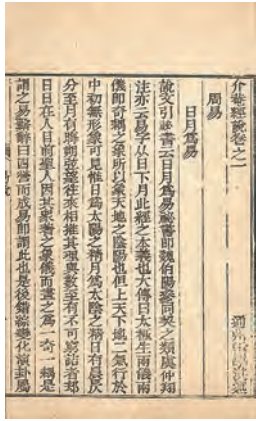 介菴經說卷之一
周易
日月爲易
說文引祕書云日月爲易祕書即魏伯陽參同契之類虞仲翔
注亦云易字从日下月此經之本義也大傳曰太極生兩儀兩
儀即奇耦之象所以象天地之陰陽也但上天下地二氣行於
中初無形象可見惟日爲太陽之精月爲太陰之精日有晨昃
分至月有晦朔弦望往來相推其理與數至有不可窮詰者却
日日在人目前聖人因其象著之象儀而畫之爲一奇一耦是
謂之易繫辭曰四營而成易即謂此也是後錯綜變化演卦爲